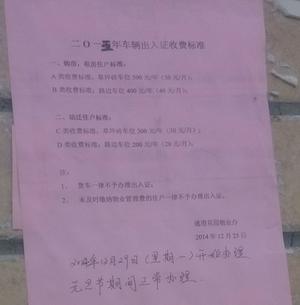 二〇一五年车辆出入证收费标准
一、购房、租房住户标准：
A类收费标准：草坪砖车位 500 元/年（50 元/月）；
B类收费标准：路边车位 400 元/年（40 元/月）；
二、动迁住户标准：
C类收费标准：草坪砖车位 300 元/年（30 元/月）；
D类收费标准：路边车位 200 元/年（20 元/月）；
注：
1、 货车一律不予办理出入证。
2、 未及时缴纳物业管理费的住户一律不予办理出入证。
花园物业办
2014 年 12 月 25 日
2014年12月29日（星期一）开始办理
元旦节期间正常办理.